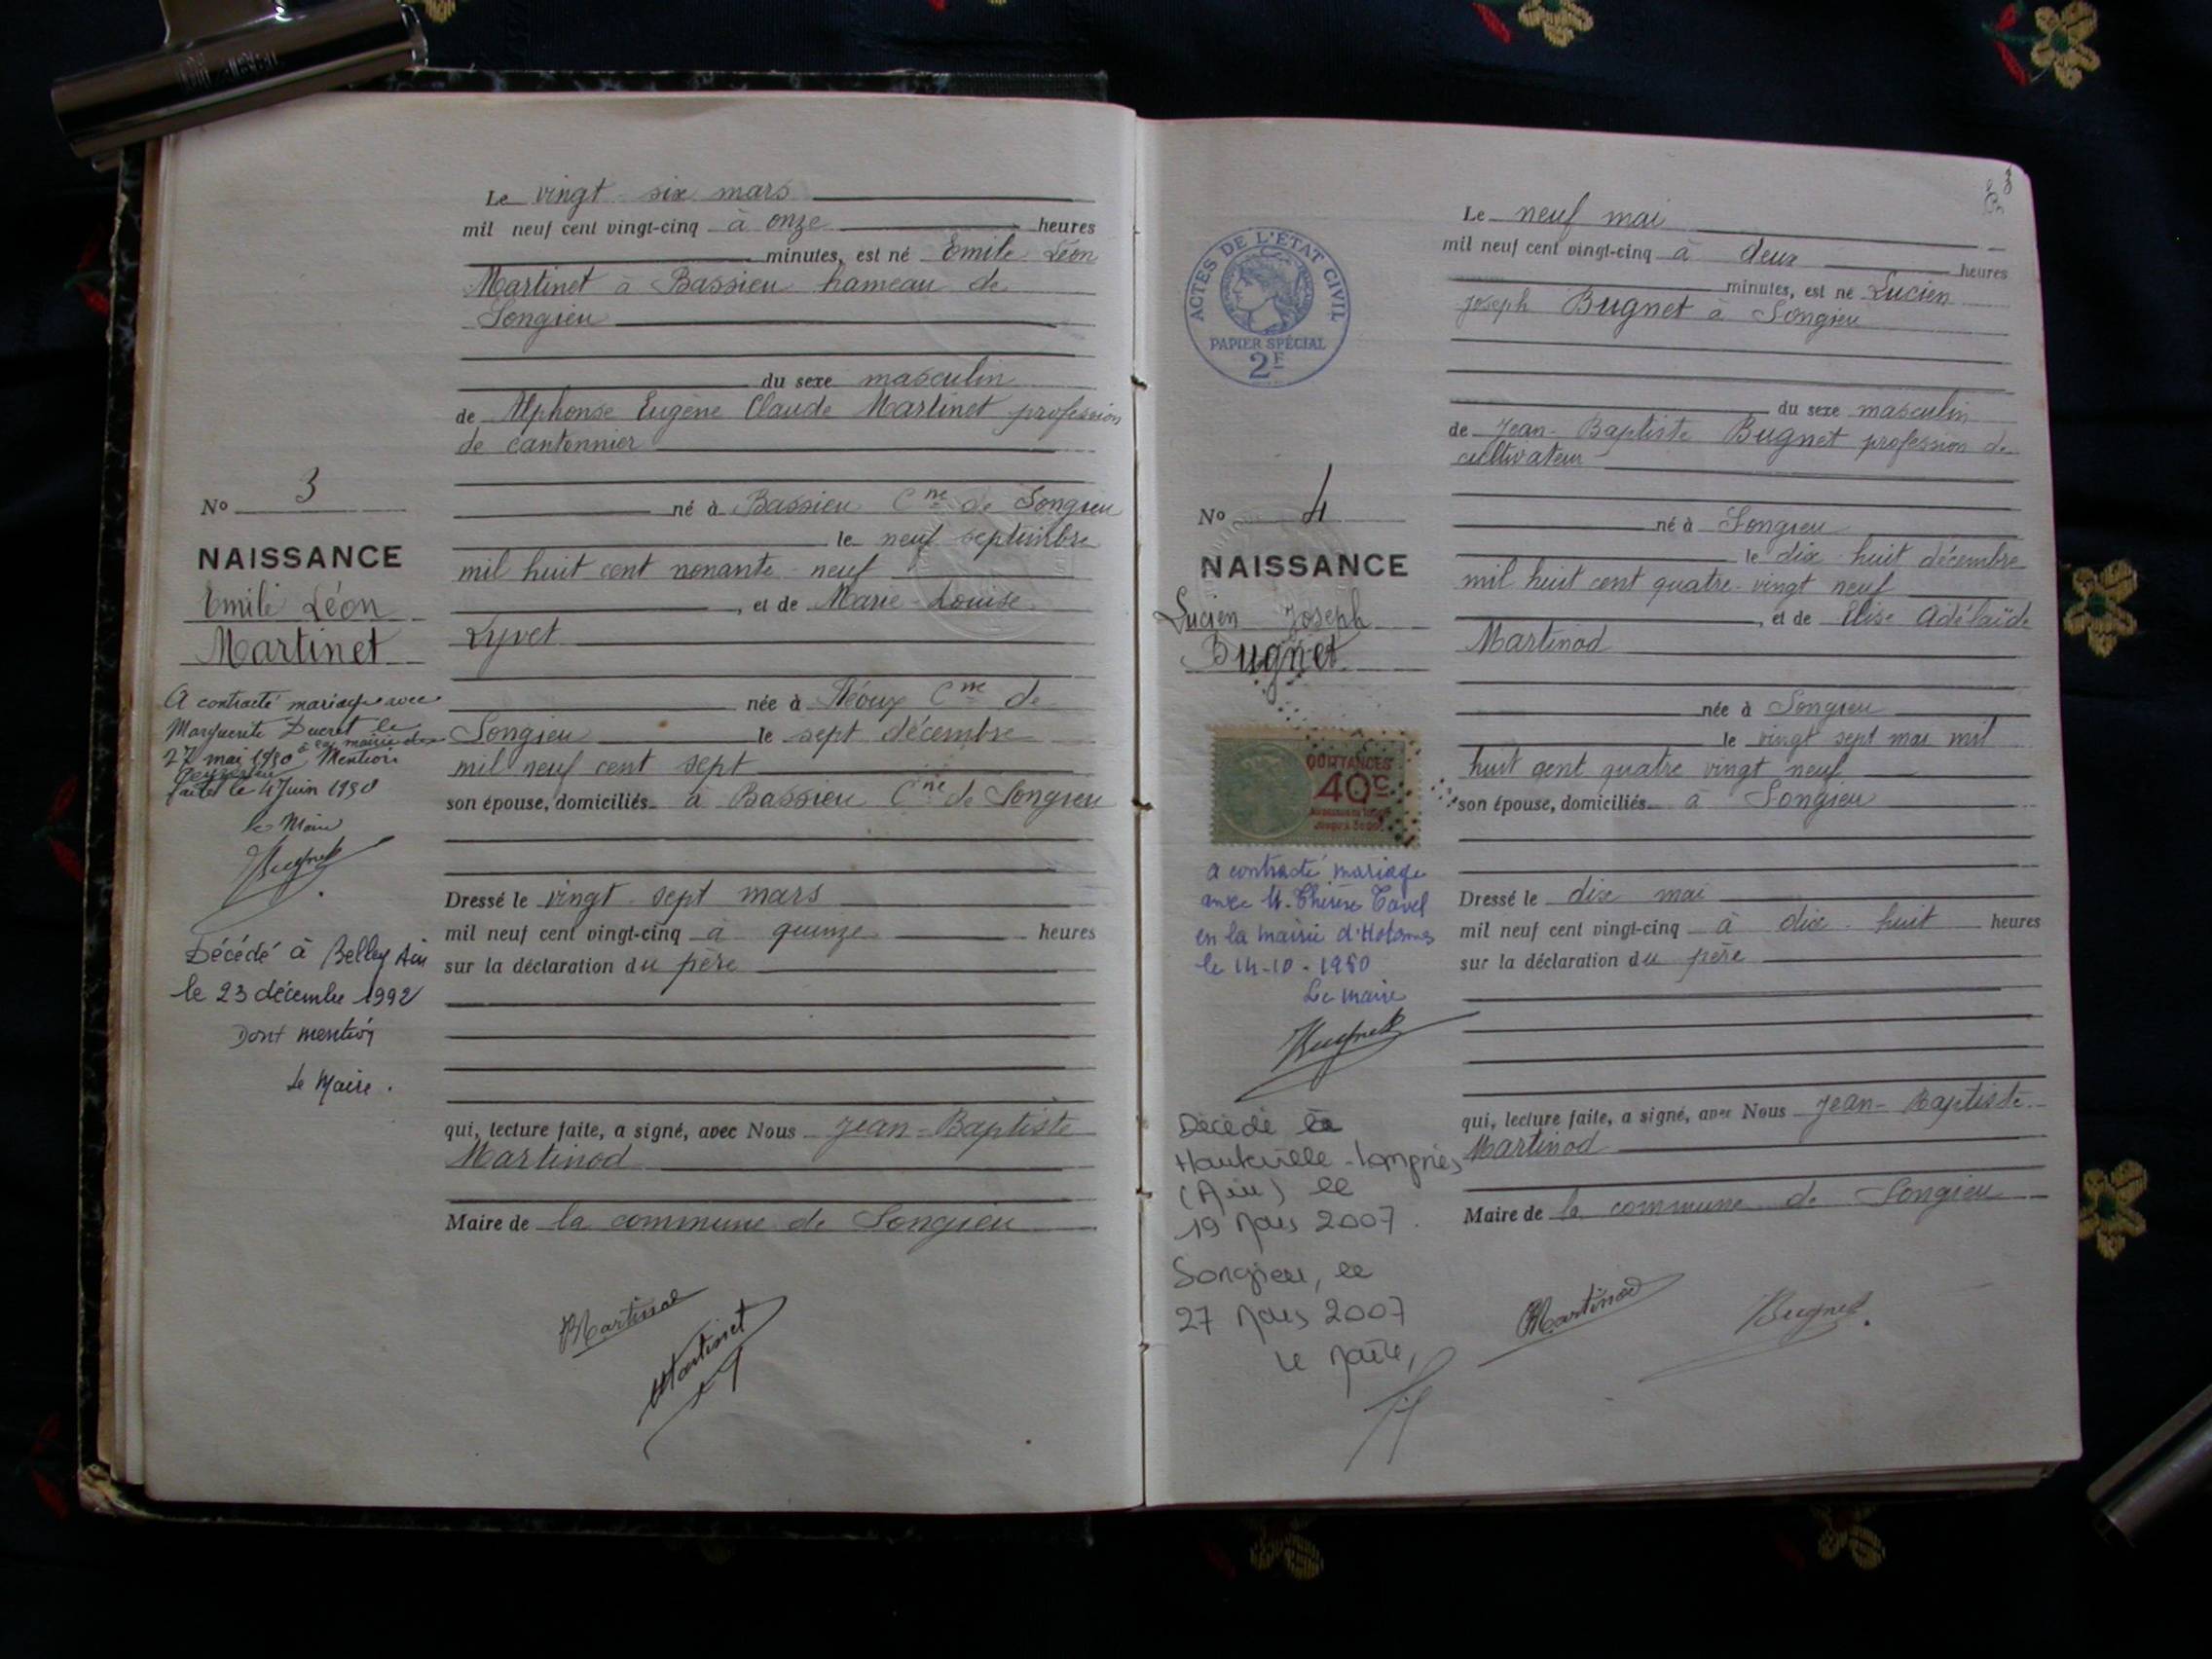 Le vingt-six mars
mil neuf cent vingt-cinq à onze heures
minutes, est né Emile Léon
Martinet à Bassieu hameau de
Songieu
du sexe masculin
de Alphonse Eugène Claude Martinet profession
de cantonnier
né à Bassieu Cne de Songieu
le neuf septembre
mil huit cent nonante-neuf
, et de Marie-Louise
Lyvet
née à Cne de
Songieu le sept décembre
mil neuf cent sept
son épouse, domiciliés à Bassieu Cne de Songieu
Dressé le vingt-sept mars
mil neuf cent vingt-cinq à quinze heures
sur la déclaration du père
qui, lecture faite, a signé, avec Nous Jean-Baptiste
Martinod
Maire de la commune de Songieu
Martinod
Martinet
No 3
NAISSANCE
Emile Léon
Martinet
A contracté mariage avec
Marguerite Ducret le
27 mai 1950 à la mairie de
Mention
faite le 4 Juin 1950
le Maire
Bugnet
Décédé à Belley Ain
le 23 décembre 1992
Dont mention
Le Maire.
3
ACTES DE L'ÉTAT CIVIL
PAPIER SPÉCIAL
2F
Le neuf mai
mil neuf cent vingt-cinq à deux heures
minutes, est né Lucien
Joseph Bugnet à Songieu
du sexe masculin
de Jean-Baptiste Bugnet profession de
cultivateur
né à Songieu
le dix-huit décembre
mil huit cent quatre-vingt neuf
, et de Elise Adélaïde
Martinod
née à Songieu
le vingt sept mai mil
huit cent quatre vingt neuf
son épouse, domiciliés à Songieu
Dressé le dix mai
mil neuf cent vingt-cinq à dix-huit heures
sur la déclaration du père
qui, lecture faite, a signé, avec Nous Jean-Baptiste
Martinod
Maire de la commune de Songieu
Martinod
Bugnet
No 4
NAISSANCE
Lucien Joseph
Bugnet
QUITTANCES
40c
a contracté mariage
avec M. Thérèse Tavel
en la mairie d'Hotonnes
le 14-10-1950
Le maire
Bugnet
Décédé à
Hauteville-Lompnes
(Ain) le
19 Mars 2007.
Songieu, le
27 Mars 2007
Le Maire,